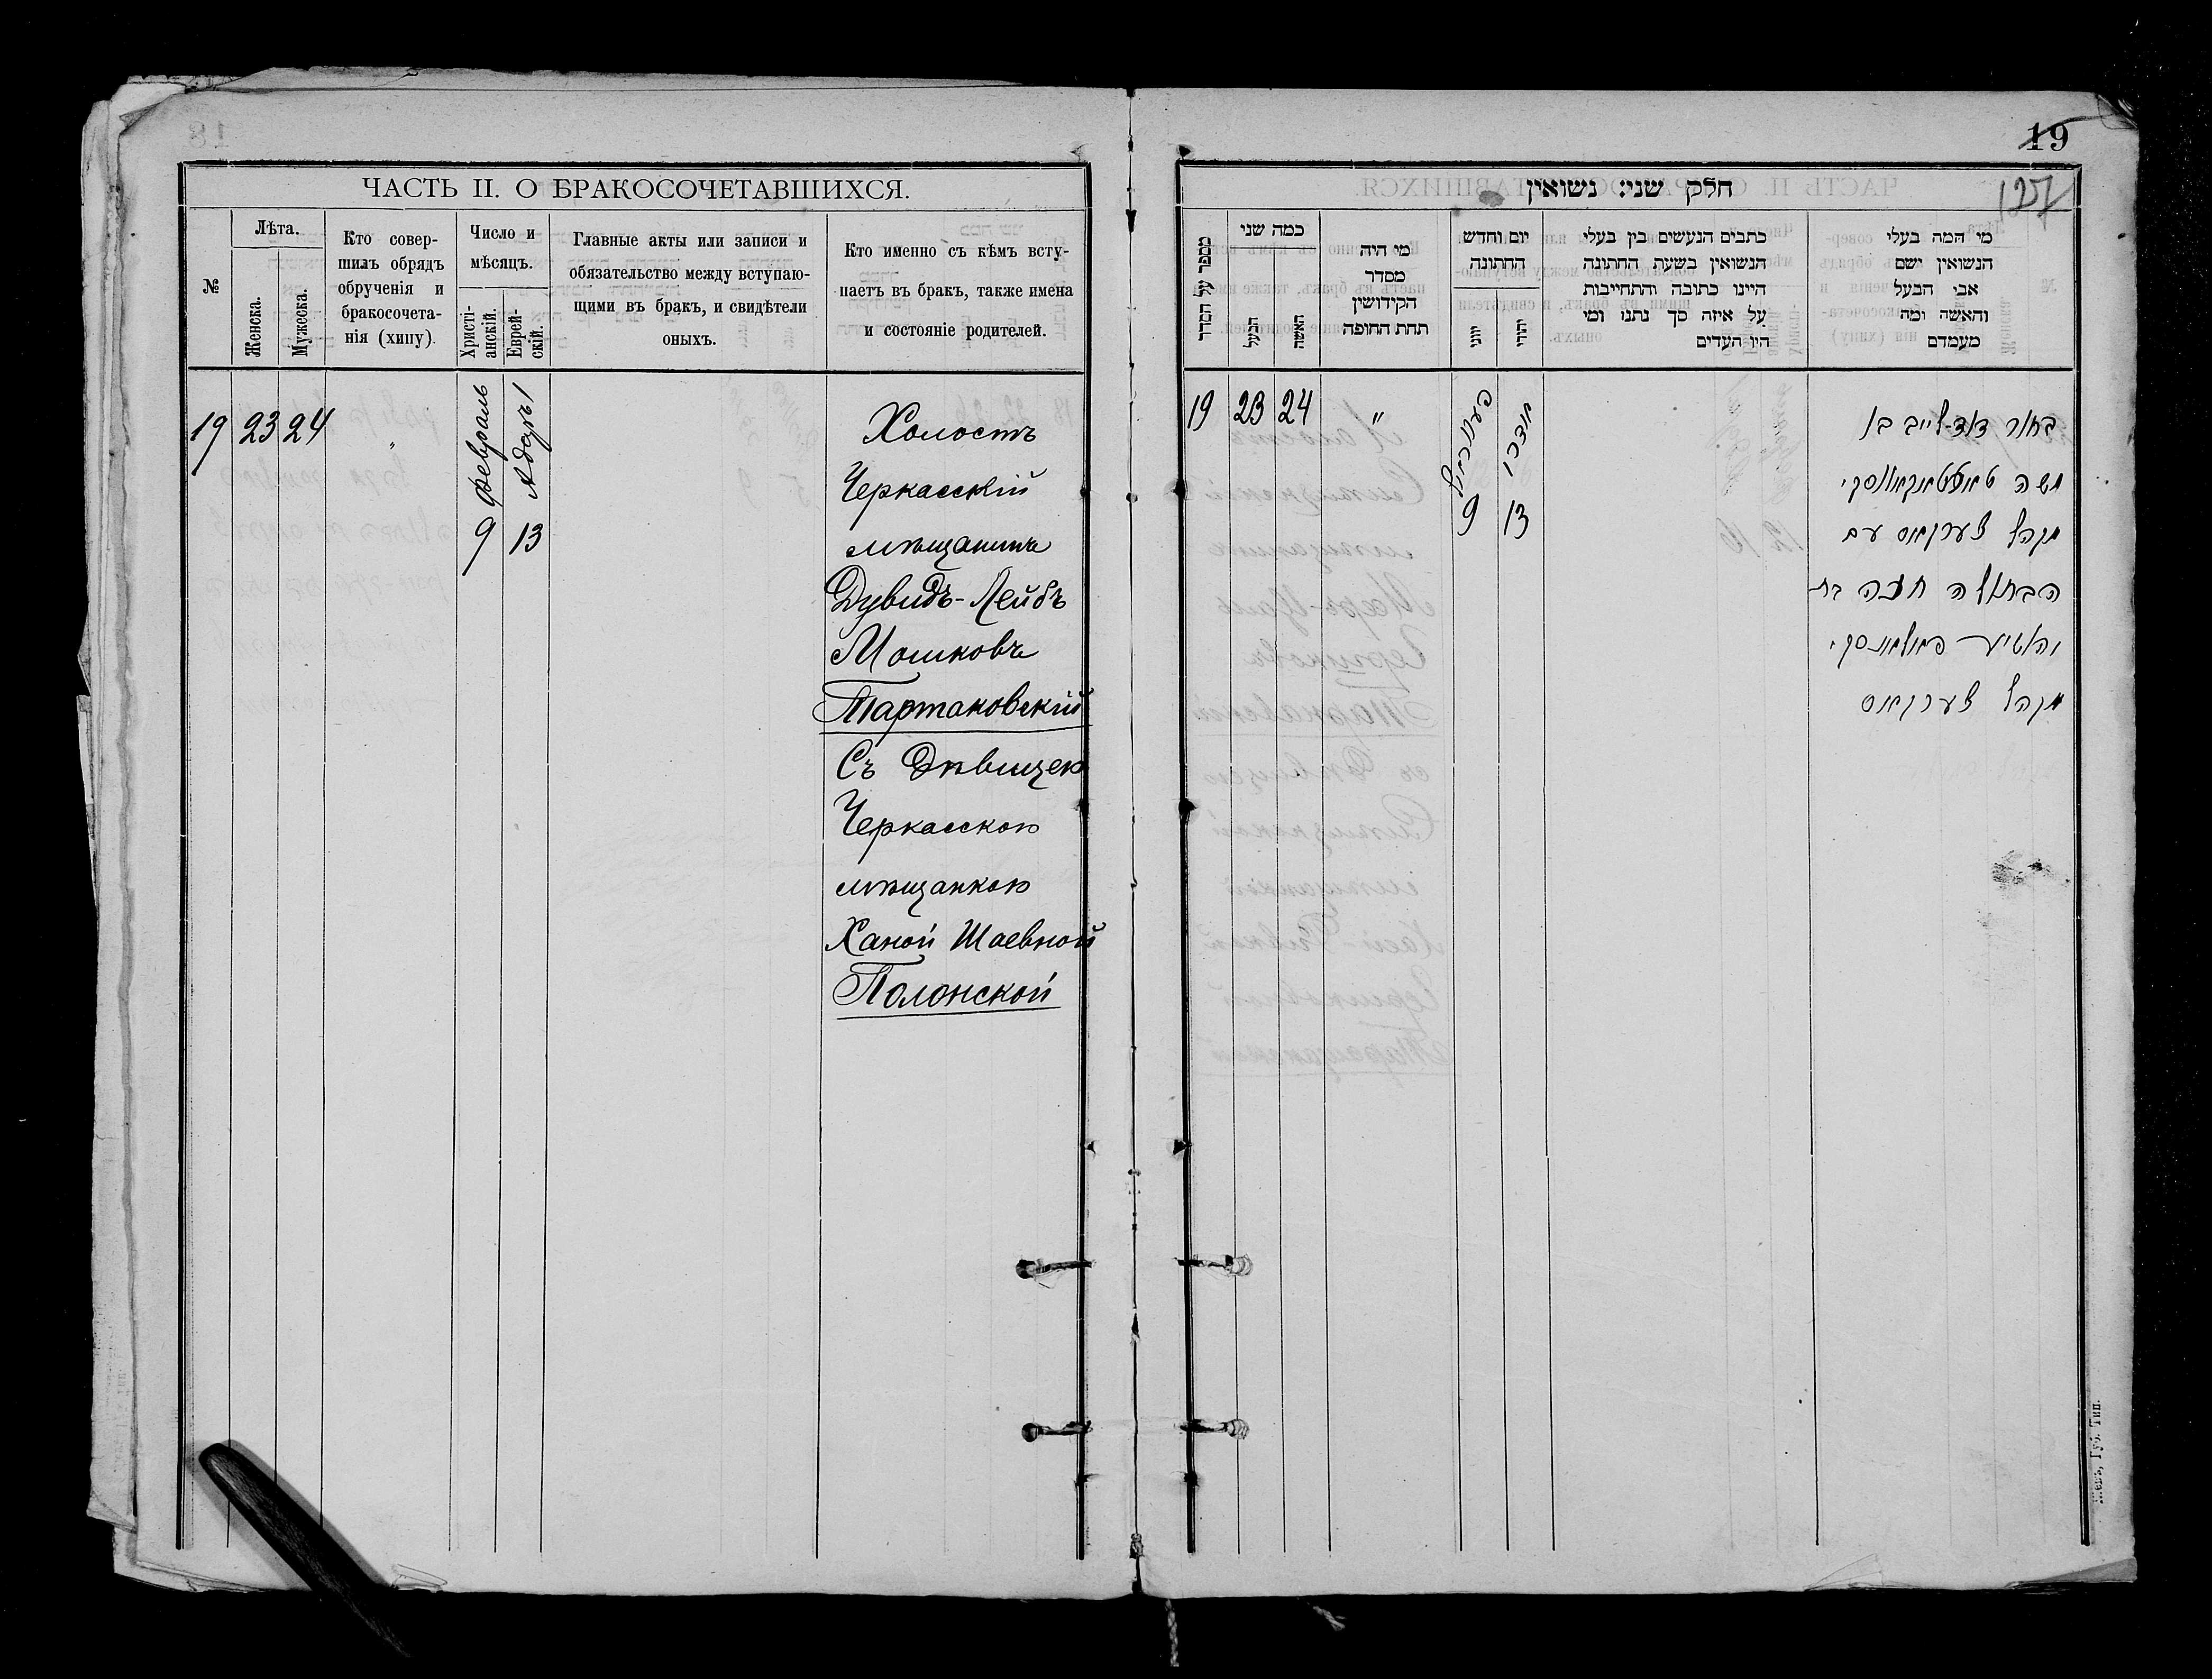 ЧАСТЬ II. О БРАКОСОЧЕТАВШИХСЯ.
№
Лѣта.
Женска.
Мужеска.
Кто совер-
шилъ обрядъ
обрученія и
бракосочета-
нія (хипу).
Число и
мѣсяцъ.
Христі-
анскій.
Еврей-
скій.
Главные акты или записи и
обязательство между вступаю-
щими въ бракъ, и свидѣтели
оныхъ.
Кто именно съ кѣмъ всту-
паетъ въ бракъ, также имена
и состояніе родителей.
19 23 24 "
9 Февраль
13 Адаръ 1
Холостъ
Черкасскій
мѣщанинъ
Дувидъ-Лейбъ
Мошковъ
Тартаковскій
Съ Дѣвицею
Черкасскою
мѣщанкою
Ханой Шаевной
Полонской
19
127
חלק שני: נשואין
מספר על הסדר
כמה שני
הבעל
האשה
מי היה
מסדר
הקידושין
תחת החופה
יום וחדש
החתונה
יווני
יהודי
כתבים הנעשים בין בעלי
הנשואין בשעת החתונה
היינו כתובה והתחייבות
על איזה סך נתנו ומי
היו העדים
מי המה בעלי
הנשואין ושם
אבי הבעל
והאשה ומה
מעמדם
19 23 24 "
9
13
בחור דוד-לייב בן
משה
מקהל צערקאס עם
הבתולה חנה בת
מקהל צערקאס
Губ. Тип.